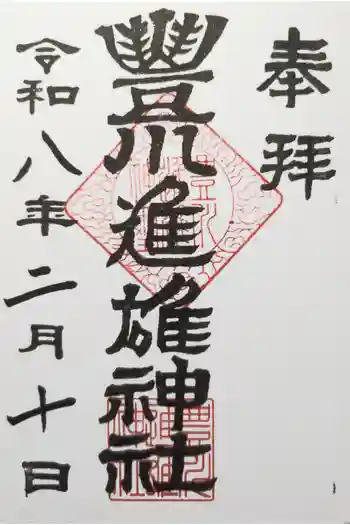 奉拝
豊川進雄神社
令和八年二月十日